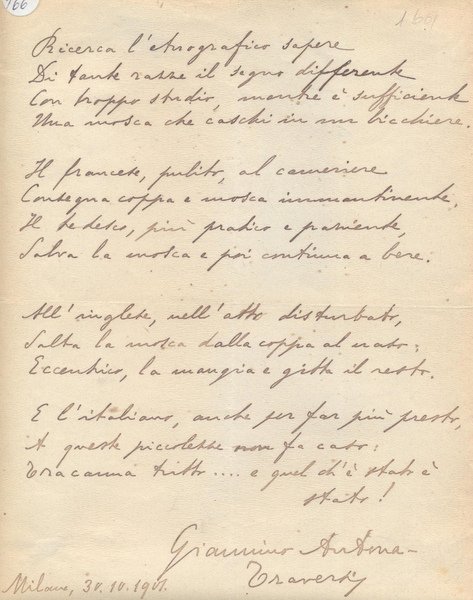 166
1601
Ricerca l'etnografico sapere
Di tante razze il segno differente
Con troppo studio, mentre è sufficiente
Una mosca che caschi in un bicchiere.
Il francese, pulito, al cameriere
Consegna coppa e mosca immantinente.
Il tedesco, più pratico e paziente,
Salva la mosca e poi continua a bere.
All'inglese, nell'atto disturbato,
Salta la mosca dalla coppa al naso:
Eccentrico, la mangia e gitta il resto.
E l'italiano, anche per far più presto,
A queste piccolezze non fa caso:
Tracanna tutto.... e quel ch'è stato è
stato!
Giannino Antona-
Traversi
Milano, 30.10.1901.